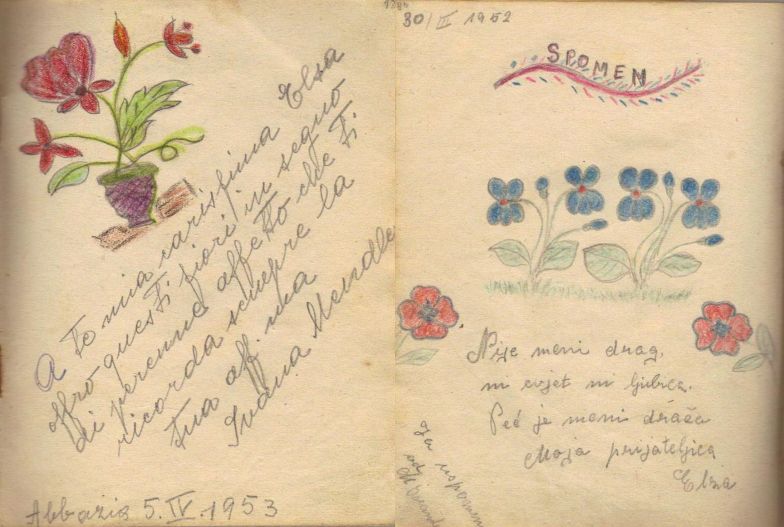 A te mia carissima Elsa
offro questi fiori in segno
di perenne affetto che ti
ricorda sempre la
tua aff.ma
Ivana
Abbazia 5.IV.1953
30/III 1952
SPOMEN
Nije meni drag,
ni cvjet ni ljubica.
Već je meni draža
Moja prijateljica
Elsa
Za uspomenu
od